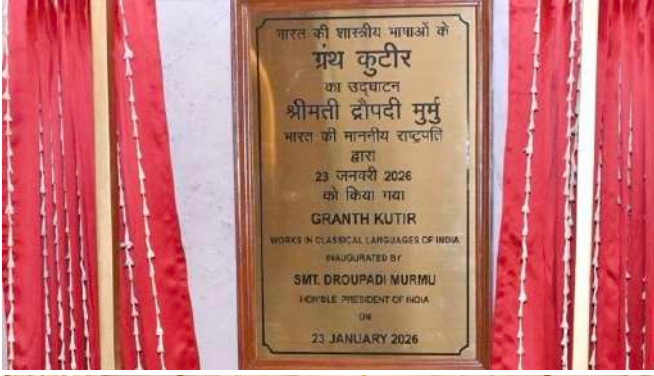 भारत की शास्त्रीय भाषाओं के
ग्रंथ कुटीर
का उद्घाटन
श्रीमती द्रौपदी मुर्मु
भारत की माननीय राष्ट्रपति
द्वारा
23 जनवरी 2026
को किया गया
GRANTH KUTIR
WORKS IN CLASSICAL LANGUAGES OF INDIA
INAUGURATED BY
SMT. DROUPADI MURMU
HON'BLE PRESIDENT OF INDIA
ON
23 JANUARY 2026